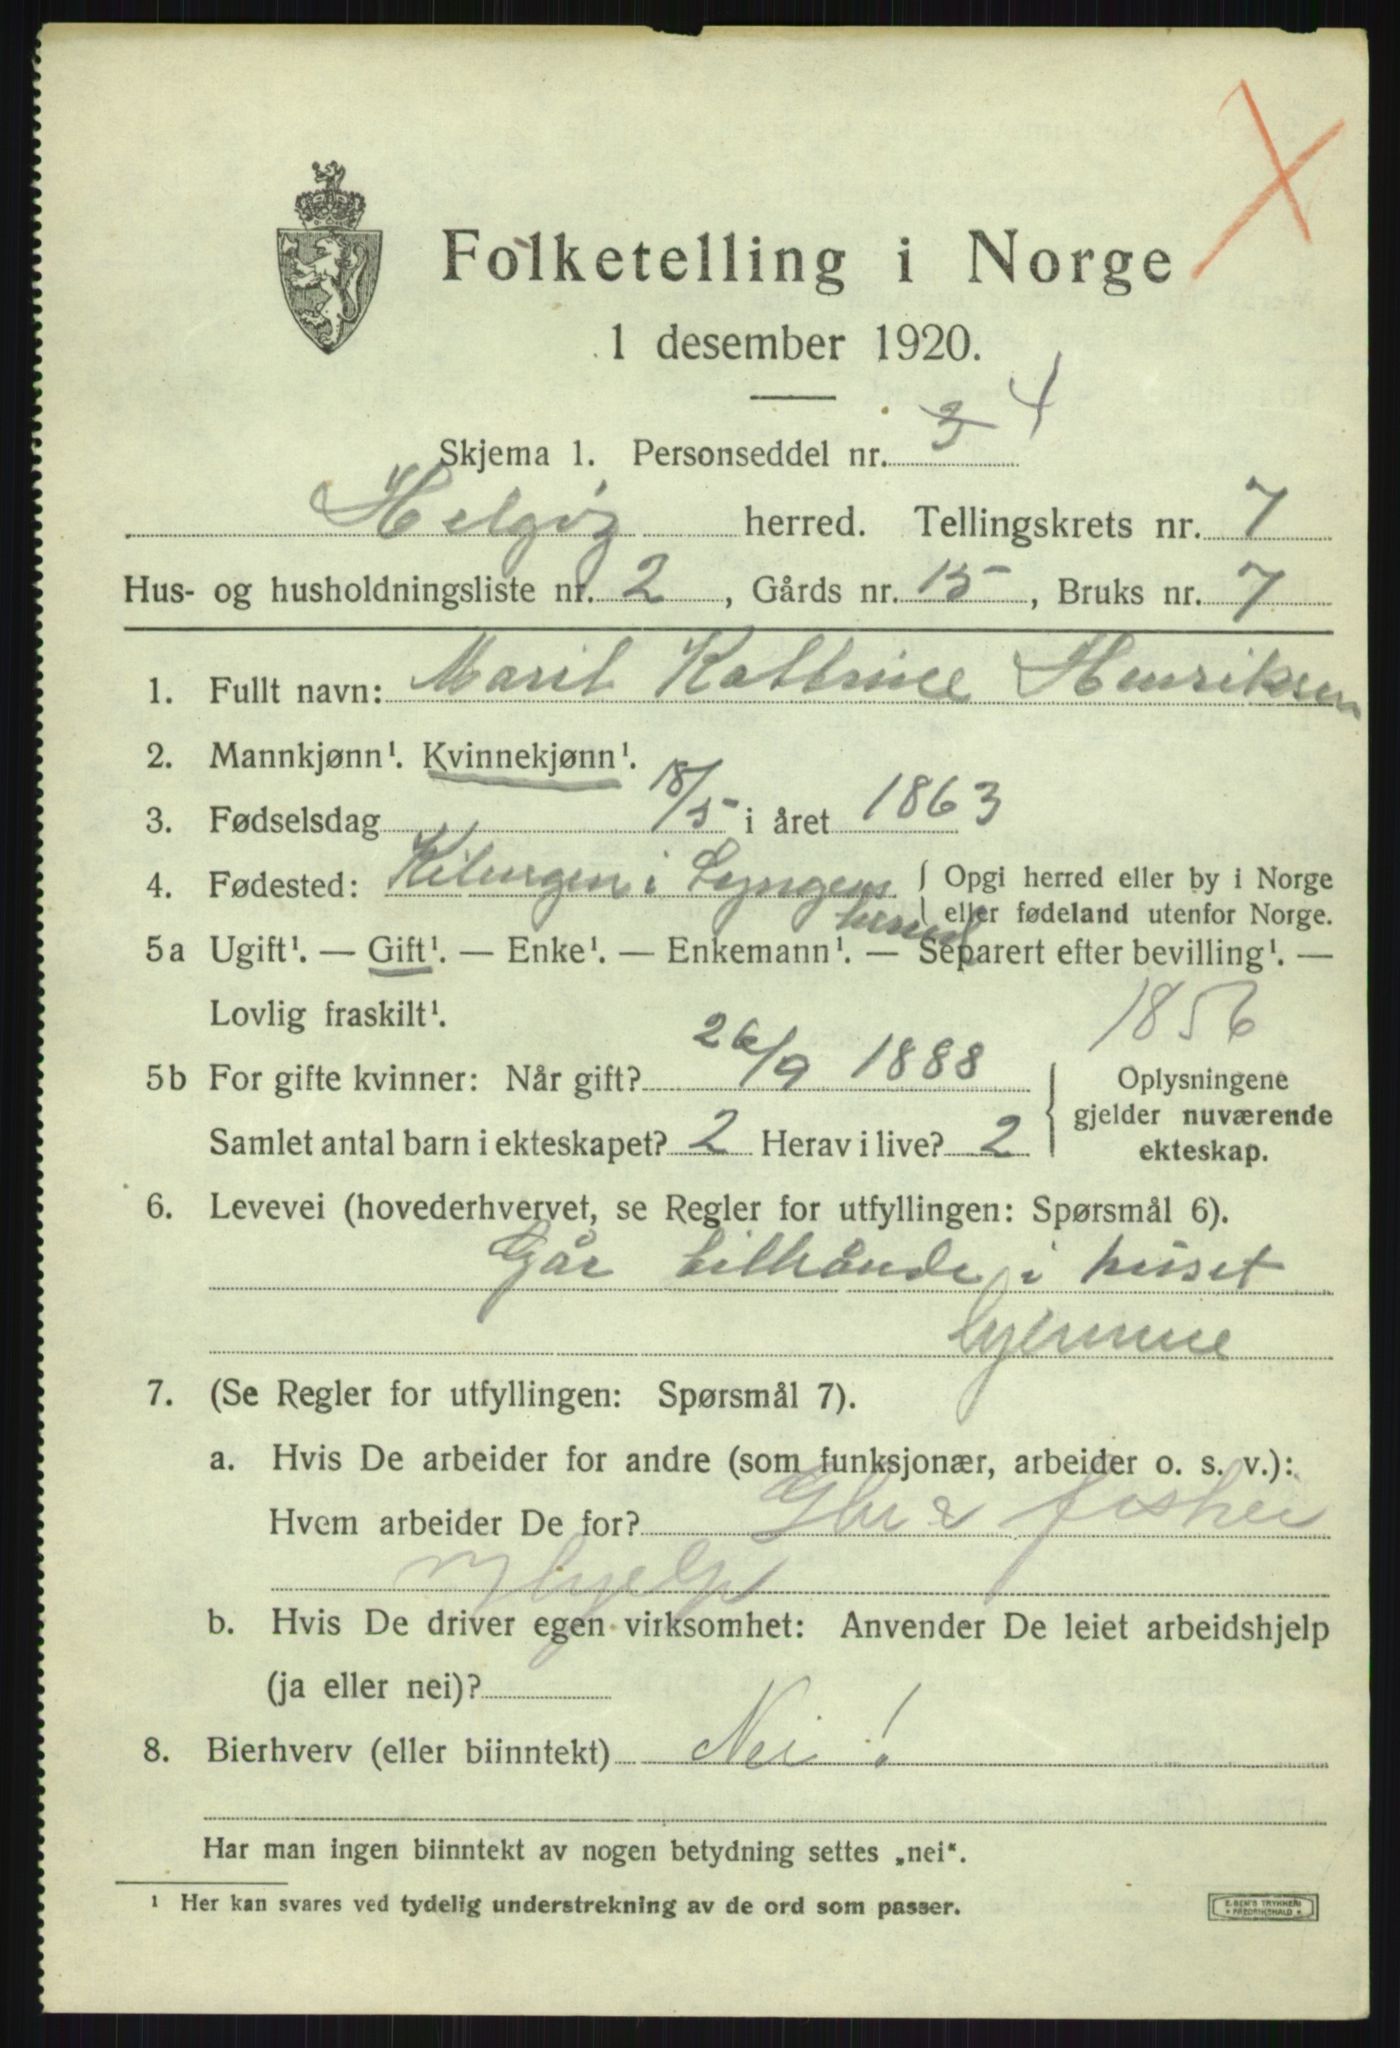 Folketelling i Norge
1 desember 1920.
Skjema 1. Personseddel nr. 3 4
Helgøy herred. Tellingskrets nr. 7
Hus- og husholdningsliste nr. 2, Gårds nr. 15, Bruks nr. 7
1. Fullt navn: Marit Kattrine Henriksen
2. Mannkjønn¹. Kvinnekjønn¹.
3. Fødselsdag 18/5 i året 1863
4. Fødested: i Lyngens { Opgi herred eller by i Norge
herred eller fødeland utenfor Norge.
5a Ugift¹. — Gift¹. — Enke¹. — Enkemann¹. — Separert efter bevilling¹. —
Lovlig fraskilt¹.
1856
5b For gifte kvinner: Når gift? 26/9 1888
Samlet antal barn i ekteskapet? 2 Herav i live? 2
{ Oplysningene
gjelder nuværende
ekteskap.
6. Levevei (hovederhvervet, se Regler for utfyllingen: Spørsmål 6).
Går tilhånde i huset
hjemme
7. (Se Regler for utfyllingen: Spørsmål 7).
a. Hvis De arbeider for andre (som funksjonær, arbeider o. s. v.):
Hvem arbeider De for? Gbr & fisker
b. Hvis De driver egen virksomhet: Anvender De leiet arbeidshjelp
(ja eller nei)?
8. Bierhverv (eller biinntekt) Nei!
Har man ingen biinntekt av nogen betydning settes „nei“.
¹ Her kan svares ved tydelig understrekning av de ord som passer.
E. SEM'S TRYKKERI
FREDRIKSHALD